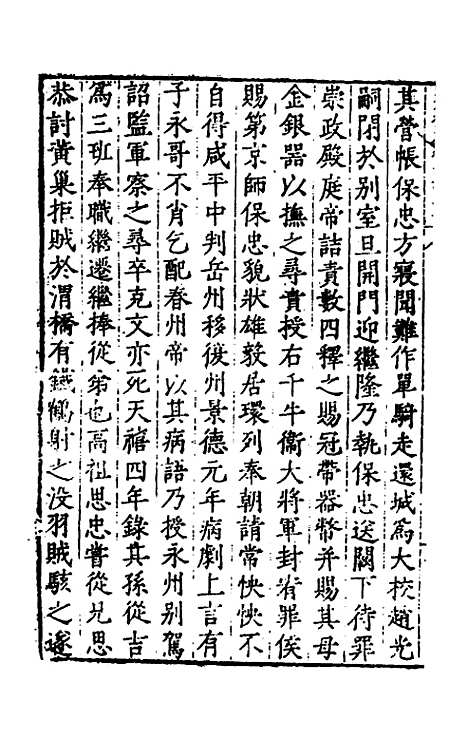 其營帳保忠方寢聞難作單騎走還城爲大校趙光
嗣閉於別室旦開門迎繼隆乃執保忠送闕下待罪
崇政殿庭帝詰責數四釋之賜冠帶器幣并賜其母
金銀器以撫之尋責授右千牛衞大將軍封宥罪侯
賜第京師保忠貌狀雄毅居環列奉朝請常怏怏不
自得咸平中判岳州移復州景德元年病劇上言有
子永哥不肖乞配春州帝以其病語乃授永州別駕
詔監軍察之尋卒克文亦死天禧四年錄其孫從吉
爲三班奉職繼遷繼捧從弟也高祖思忠嘗從兄思
恭討黃巢拒賊於渭橋有鐵鶴射之没羽賊駭之遂